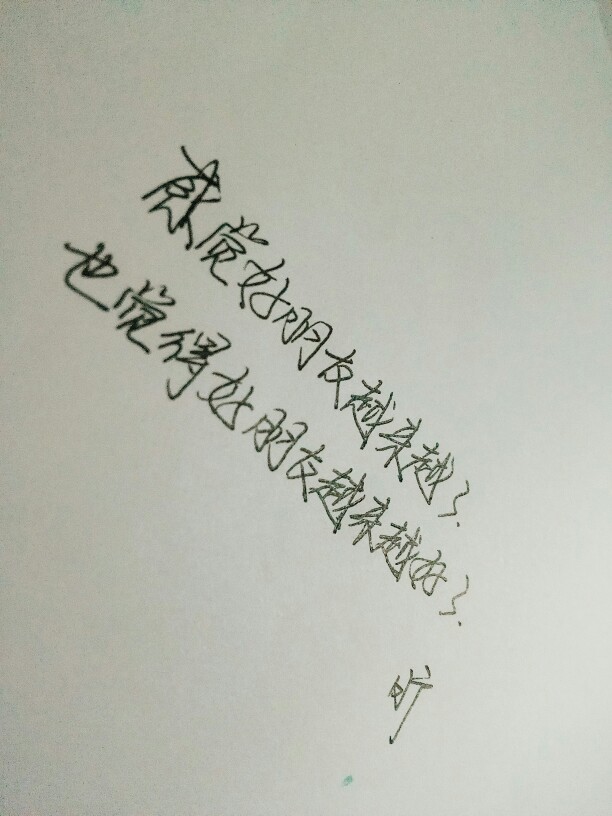 感觉好朋友越来越了.
也觉得好朋友越来越好了.
旷